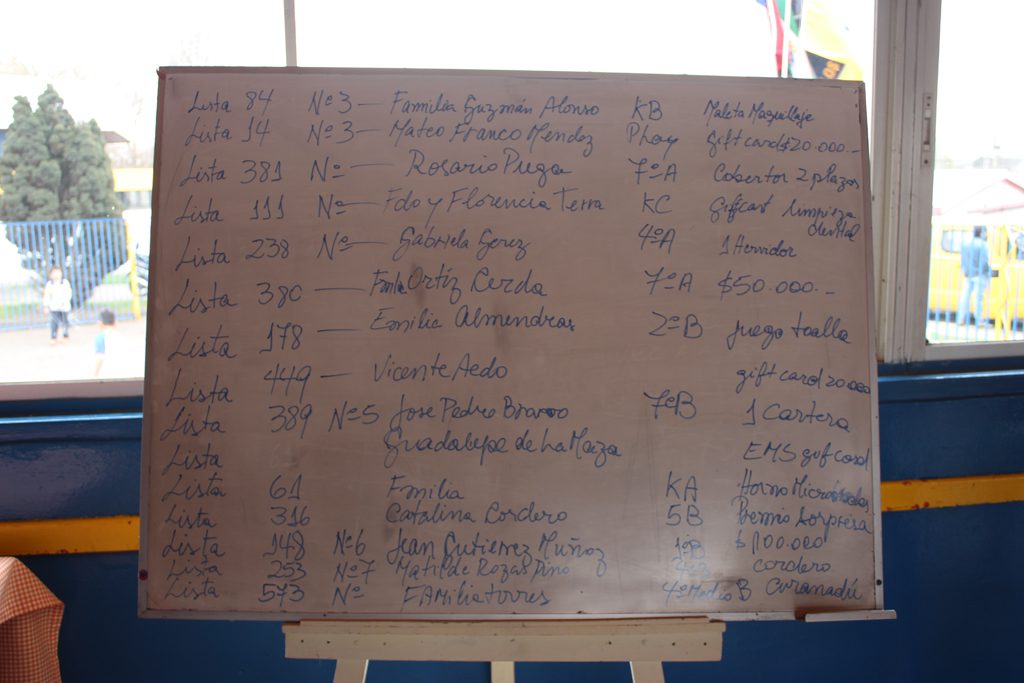 Lista 84 Nº3 — Familia Guzmán Alonso KB Maleta Maquillaje
Lista 14 Nº3 — Mateo Franco Mendez Phay gift card $20.000.—
Lista 381 Nº — Rosario Puga 7ºA Cobertor 2 plazas
Lista 111 Nº — Fdo y Florencia Terra KC Giftcart limpieza dental
Lista 238 Nº — Gabriela Gerez 4ºA 1 Hervidor
Lista 380 — Fmla Ortíz Cerda 7ºA $50.000.—
Lista 178 — Emilia Almendras 2ºB juego toalla
Lista 449 — Vicente Aedo gift card 20.000
Lista 389 Nº5 Jose Pedro Bravo 7ºB 1 Cartera
Lista Guadalupe de La Maza EMS gif card
Lista 61 Emilia KA Horno Microondas
Lista 316 Catalina Cordero 5B Premio Sorpresa
Lista 148 Nº6 Jean Gutierrez Muñoz 1ºB $100.000
Lista 253 Nº7 Matilde Rozas Pino cordero
Lista 573 Nº FAMilia torres 4º Medio B Curanadú